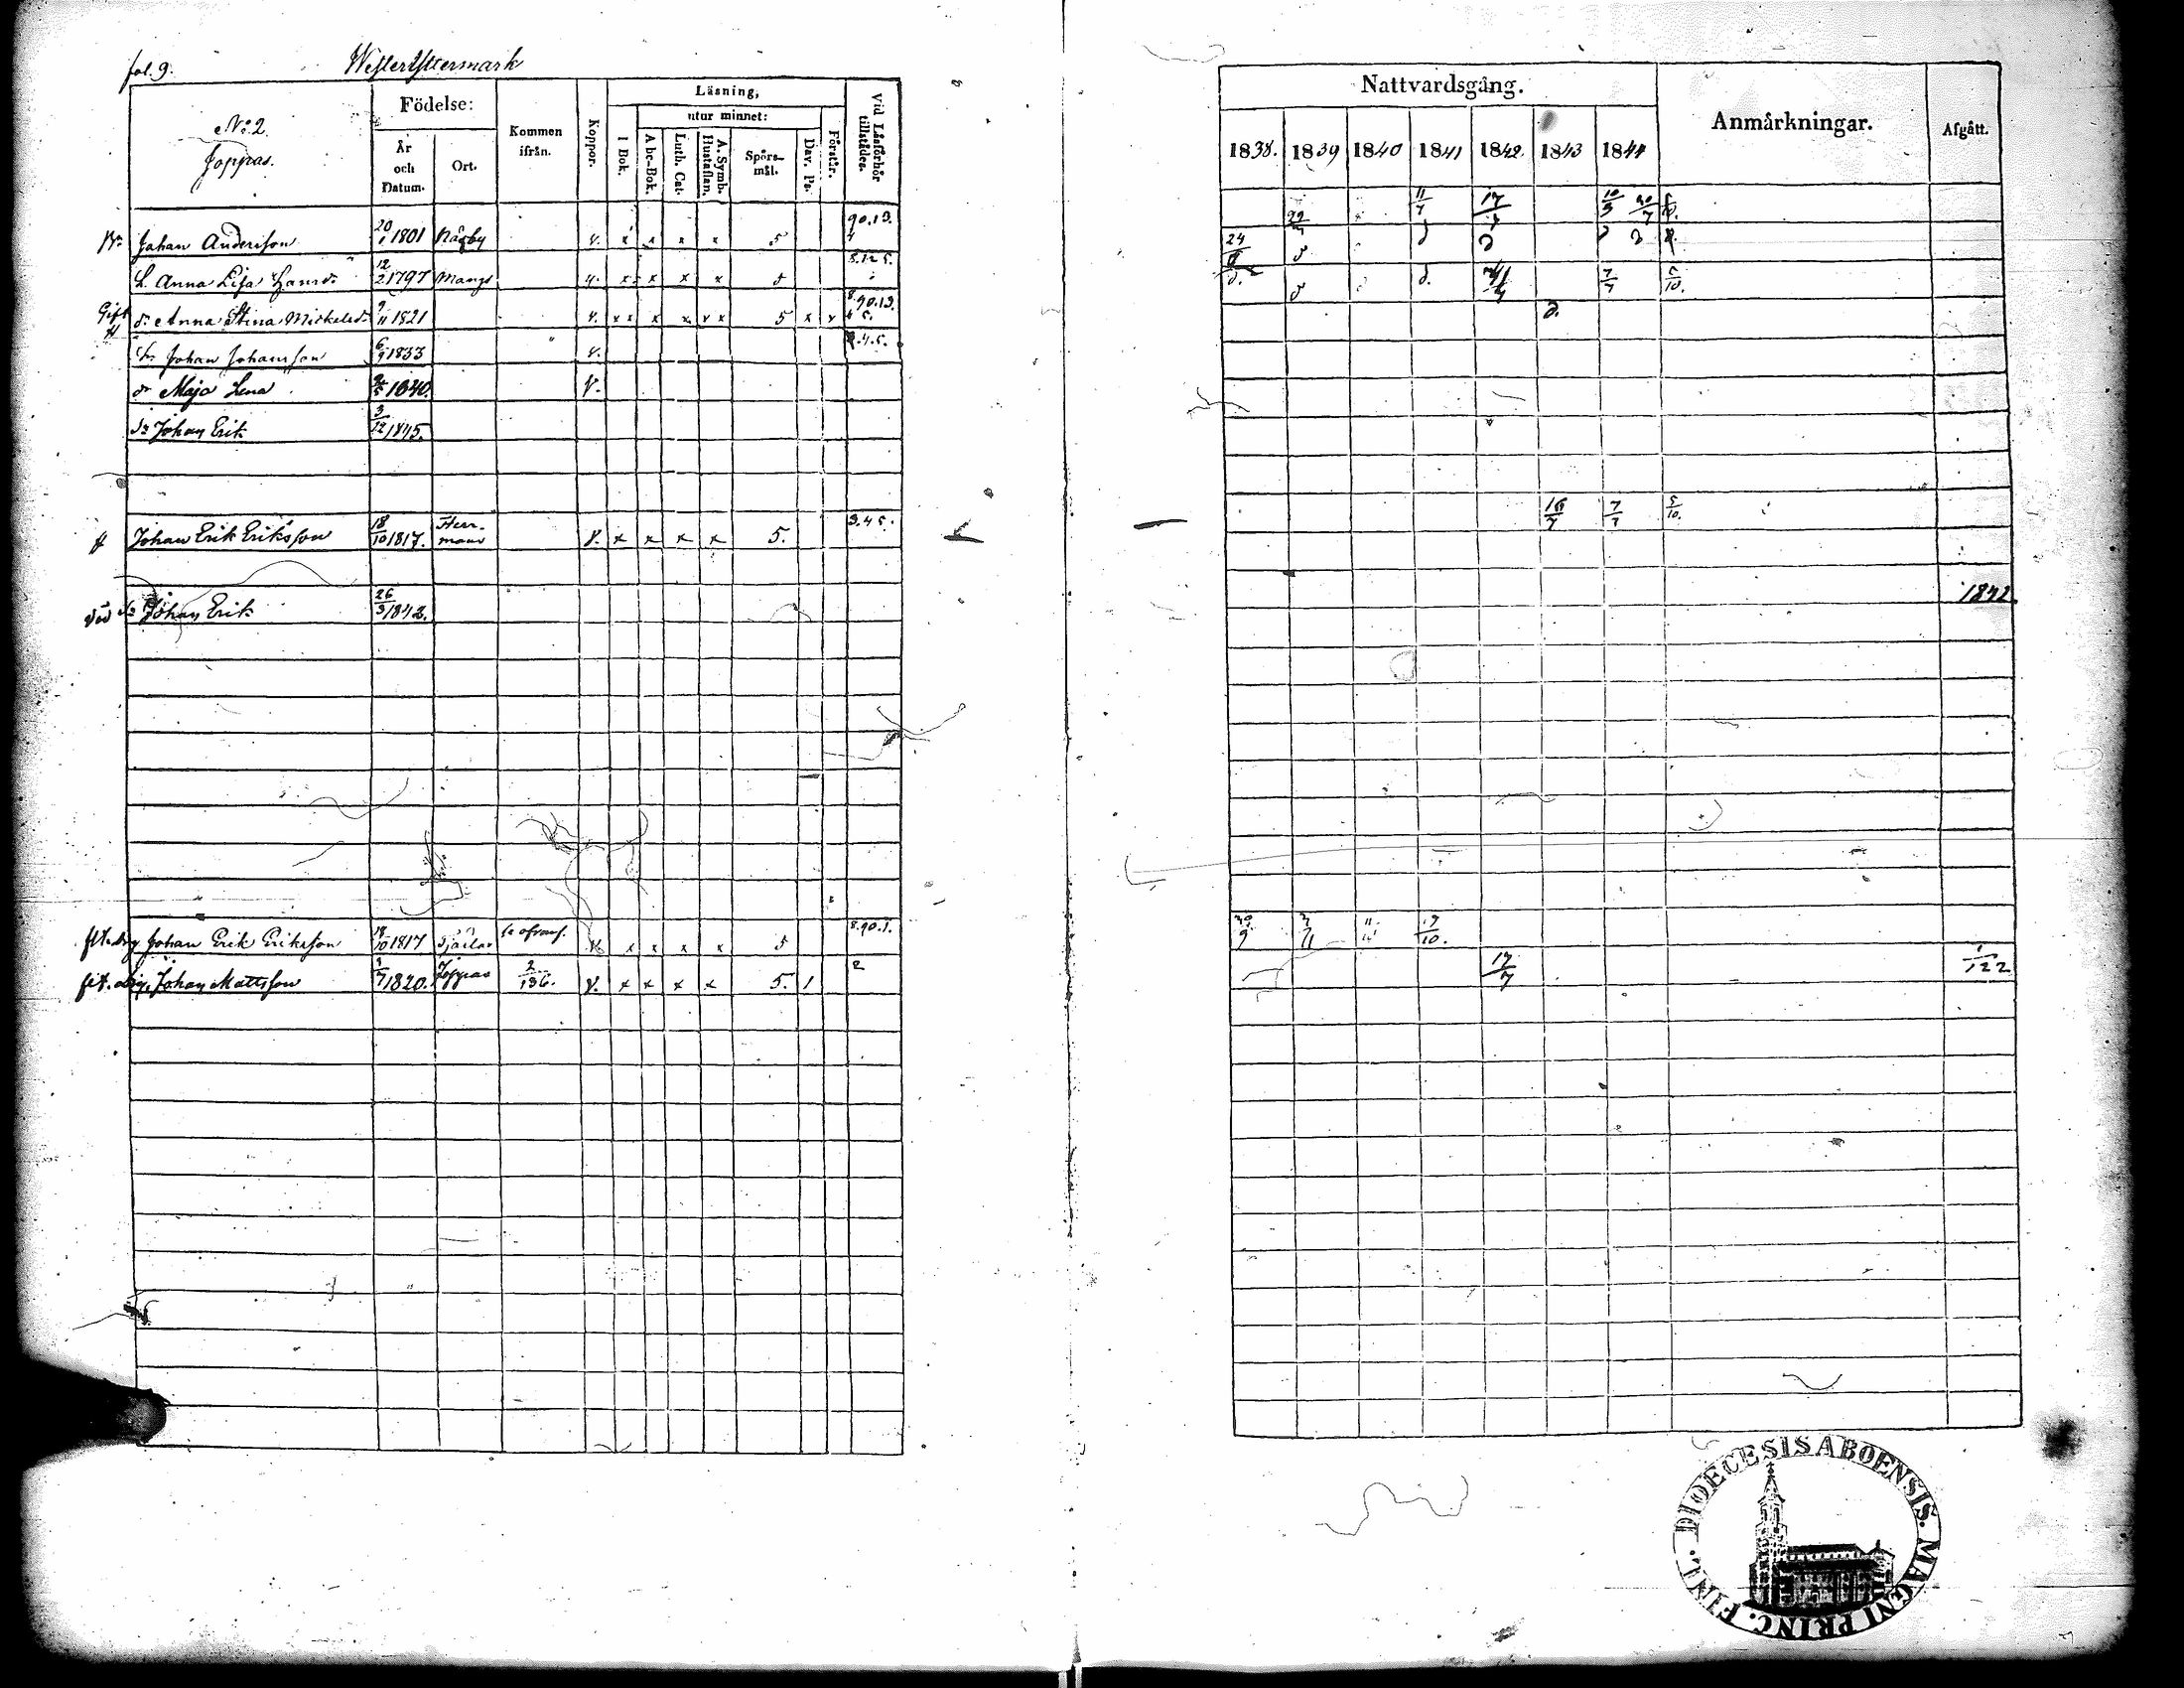 fol. 9. Westerystermark
No: 2.
Joppas.
Födelse:
År och Datum.
Ort.
Kommen ifrån.
Koppor.
Läsning,
I Bok.
utur minnet:
Abc-Bok.
Luth. Cat.
A. Symb. Hustaflan.
Spörs-mål.
Dav. Ps.
Förstår.
Vid Läsförhör tillstädes.
Nattvardsgång.
1838. 1839 1840 1841 1842 1843 1844
Anmärkningar.
Afgått.
Johan Andersson 20/1 1801 Någby v. x x x x 5 90.19. 4 22/7 11/7 17/7 10/3 20/7
h. Anna Lisa Hansd. 12/2 1797 Mangs v. x x x x 5 24
Gift d. Anna Stina Mickelsd. 9/11 1821 v. x x x x x x 5 x x 8.90.19. 4 5. d. d. 7/7 5/10.
S. Johan Johansson 6/9 1833 v. d.
dr Maja Lena 1840. v.
Sn Johan Erik 3/12 1845.
Johan Erik Eriksson 18/10 1817. Herrmans v. x x x x 5. 3.4 5. 16/7 7/7 5/10.
död Sn Johan Erik 26/3 1842. 1842.
Johan Erik Eriksson 18/10 1817 v x x x x 5 8.90.1. 19/10.
Johan Mattsson 1820. Joppas 2/136. v. x x x x 5. 1 2 17/7 1/122
DIOECESIS ABOENSIS. MAGNI PRINC. FINL.